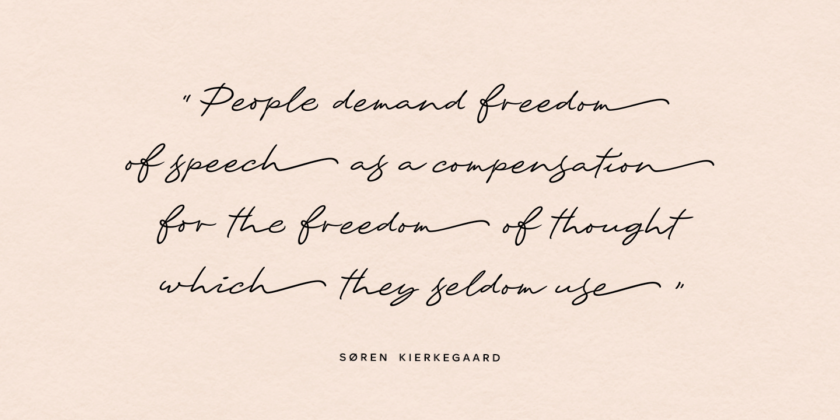 "People demand freedom
of speech as a compensation
for the freedom of thought
which they seldom use"
SØREN KIERKEGAARD